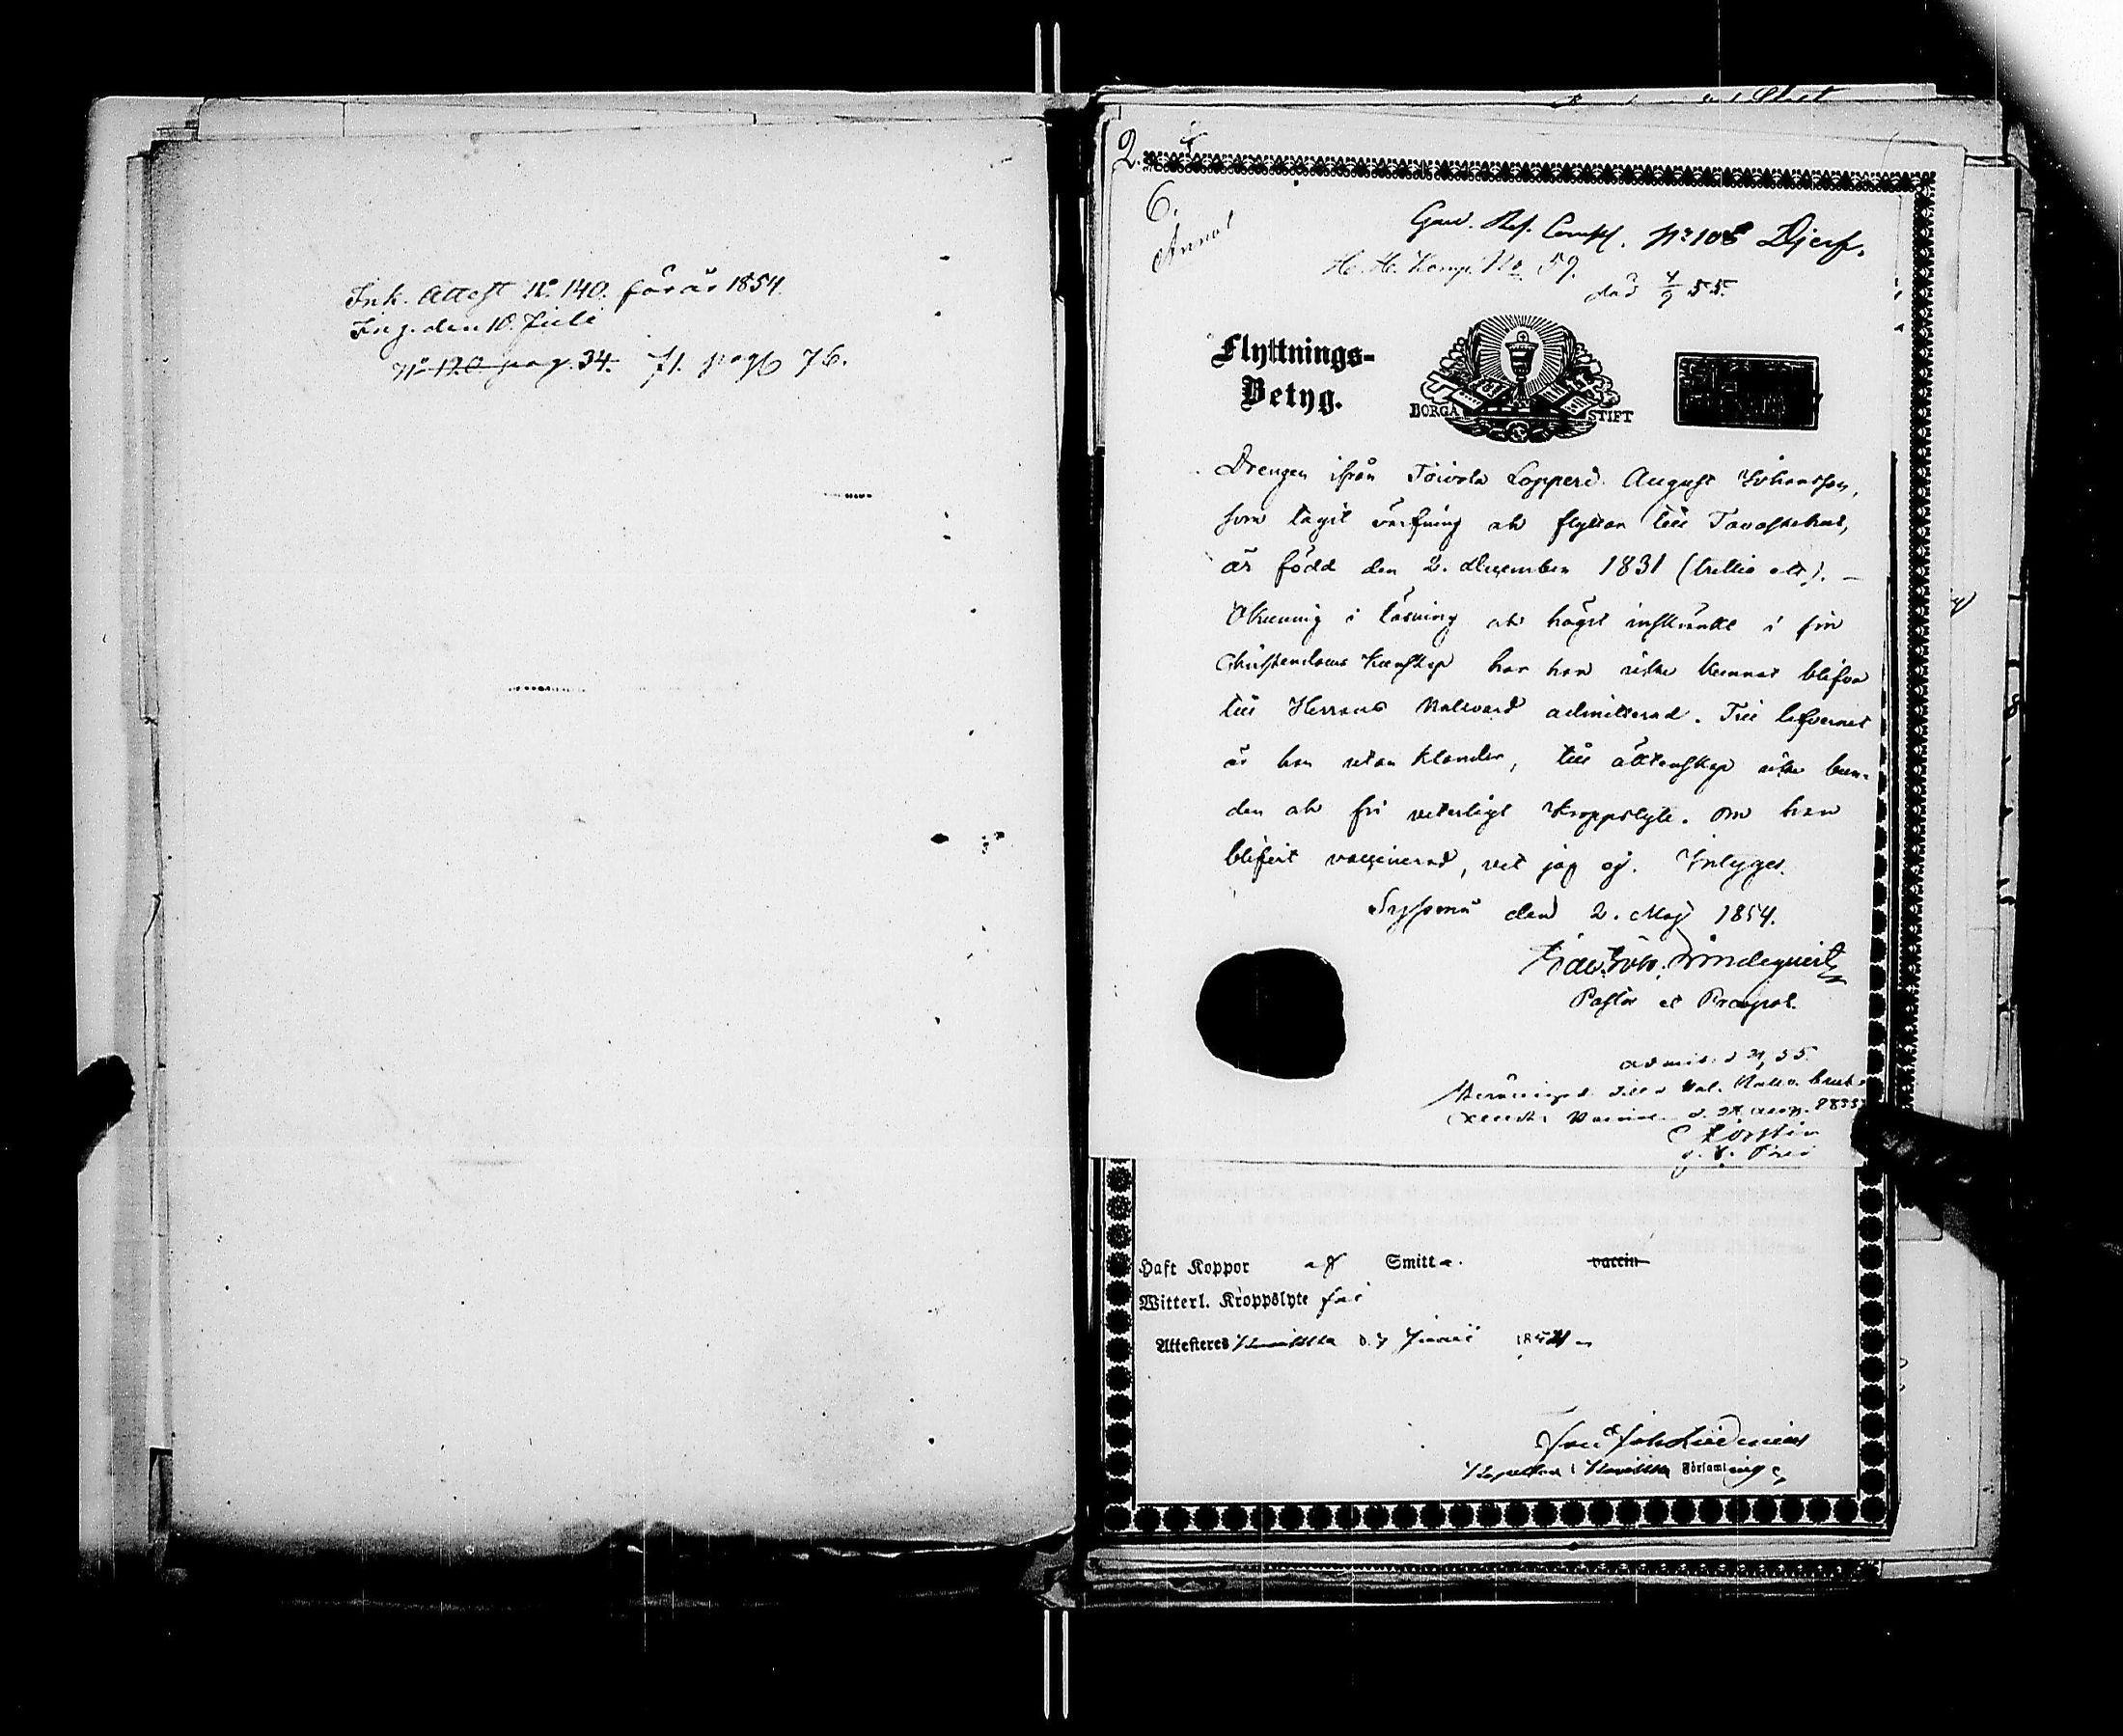 Ink. Attest No 140. för år 1854.
Ing. den 10. Juli
No 120. pag. 34. fl. pag 76.
2.
6.
Annot
Gard. Res. Comp. No 108 Djerf.
No 59.
död 4/9 55.
Flyttnings-
Betyg.
BORGÅ STIFT
Drengen ifrån Toivola August Johansson,
som tagit värfning och flyttar till Tavastehus,
är född den 2. December 1831 (trettio ett). —
Okunnig i läsning och högst inskränkt i sin
Christendoms kunskap har han icke kunnat blifva
till Herrans Nattvard admitterad. Till lefvernet
är han utan klander, till äktenskap icke bun-
den och fri veterligt kroppslyte. Om han
blifvit vaccinerad, vet jag ej. Intygas.
Sysmä den 2. Maj 1854.
Lindequist
Pastor et Praepos.
admit. 55
Haft Koppor af Smitta. vaccin
Witterl. Kroppslyte fri
Attesteres d. 7 Junii 1854
i Församling